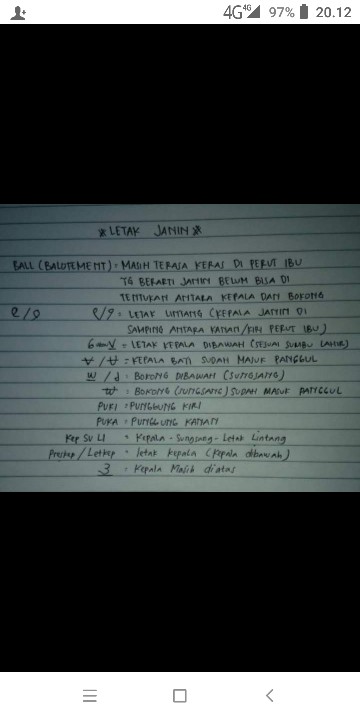 4G 4G 97% 20.12
* LETAK JANIN *
BALL (BALOTEMENT) = MASIH TERASA KERAS DI PERUT IBU
YG BERARTI JANIN BELUM BISA DI
TENTUKAN ANTARA KEPALA DAN BOKONG
= LETAK LINTANG (KEPALA JANIN DI
SAMPING ANTARA KANAN/KIRI PERUT IBU)
= LETAK KEPALA DIBAWAH (SESUAI SUMBU LAHIR)
= KEPALA BAYI SUDAH MASUK PANGGUL
= BOKONG DIBAWAH (SUNGSANG)
= BOKONG (SUNGSANG) SUDAH MASUK PANGGUL
PUKI = PUNGGUNG KIRI
PUKA = PUNGGUNG KANAN
Kep SU LI = Kepala - Sungsang - Letak Lintang
Preskep / Letkep = letak kepala (kepala dibawah)
3 = Kepala Masih diatas